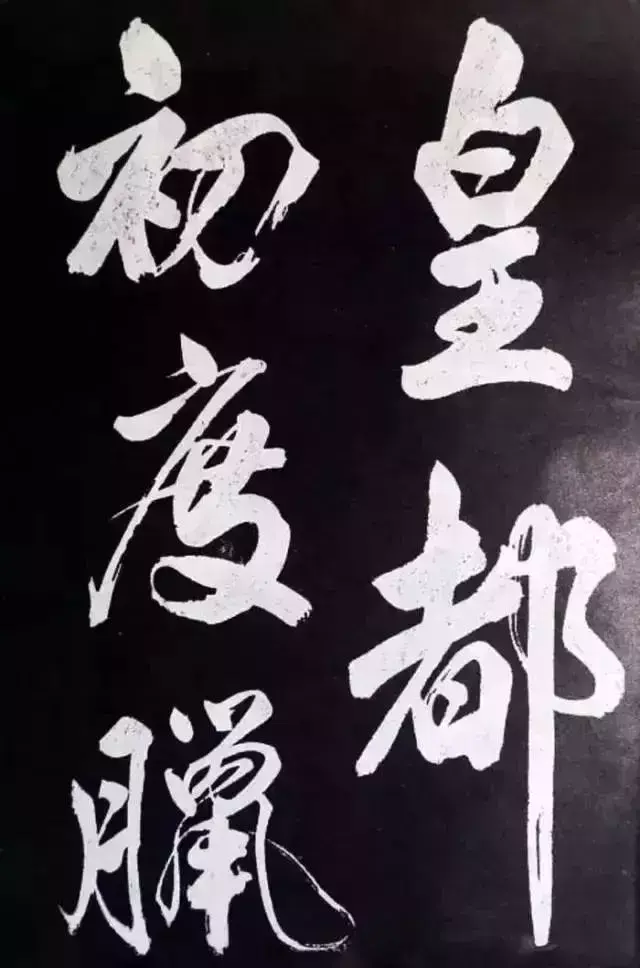 皇都
初度臘